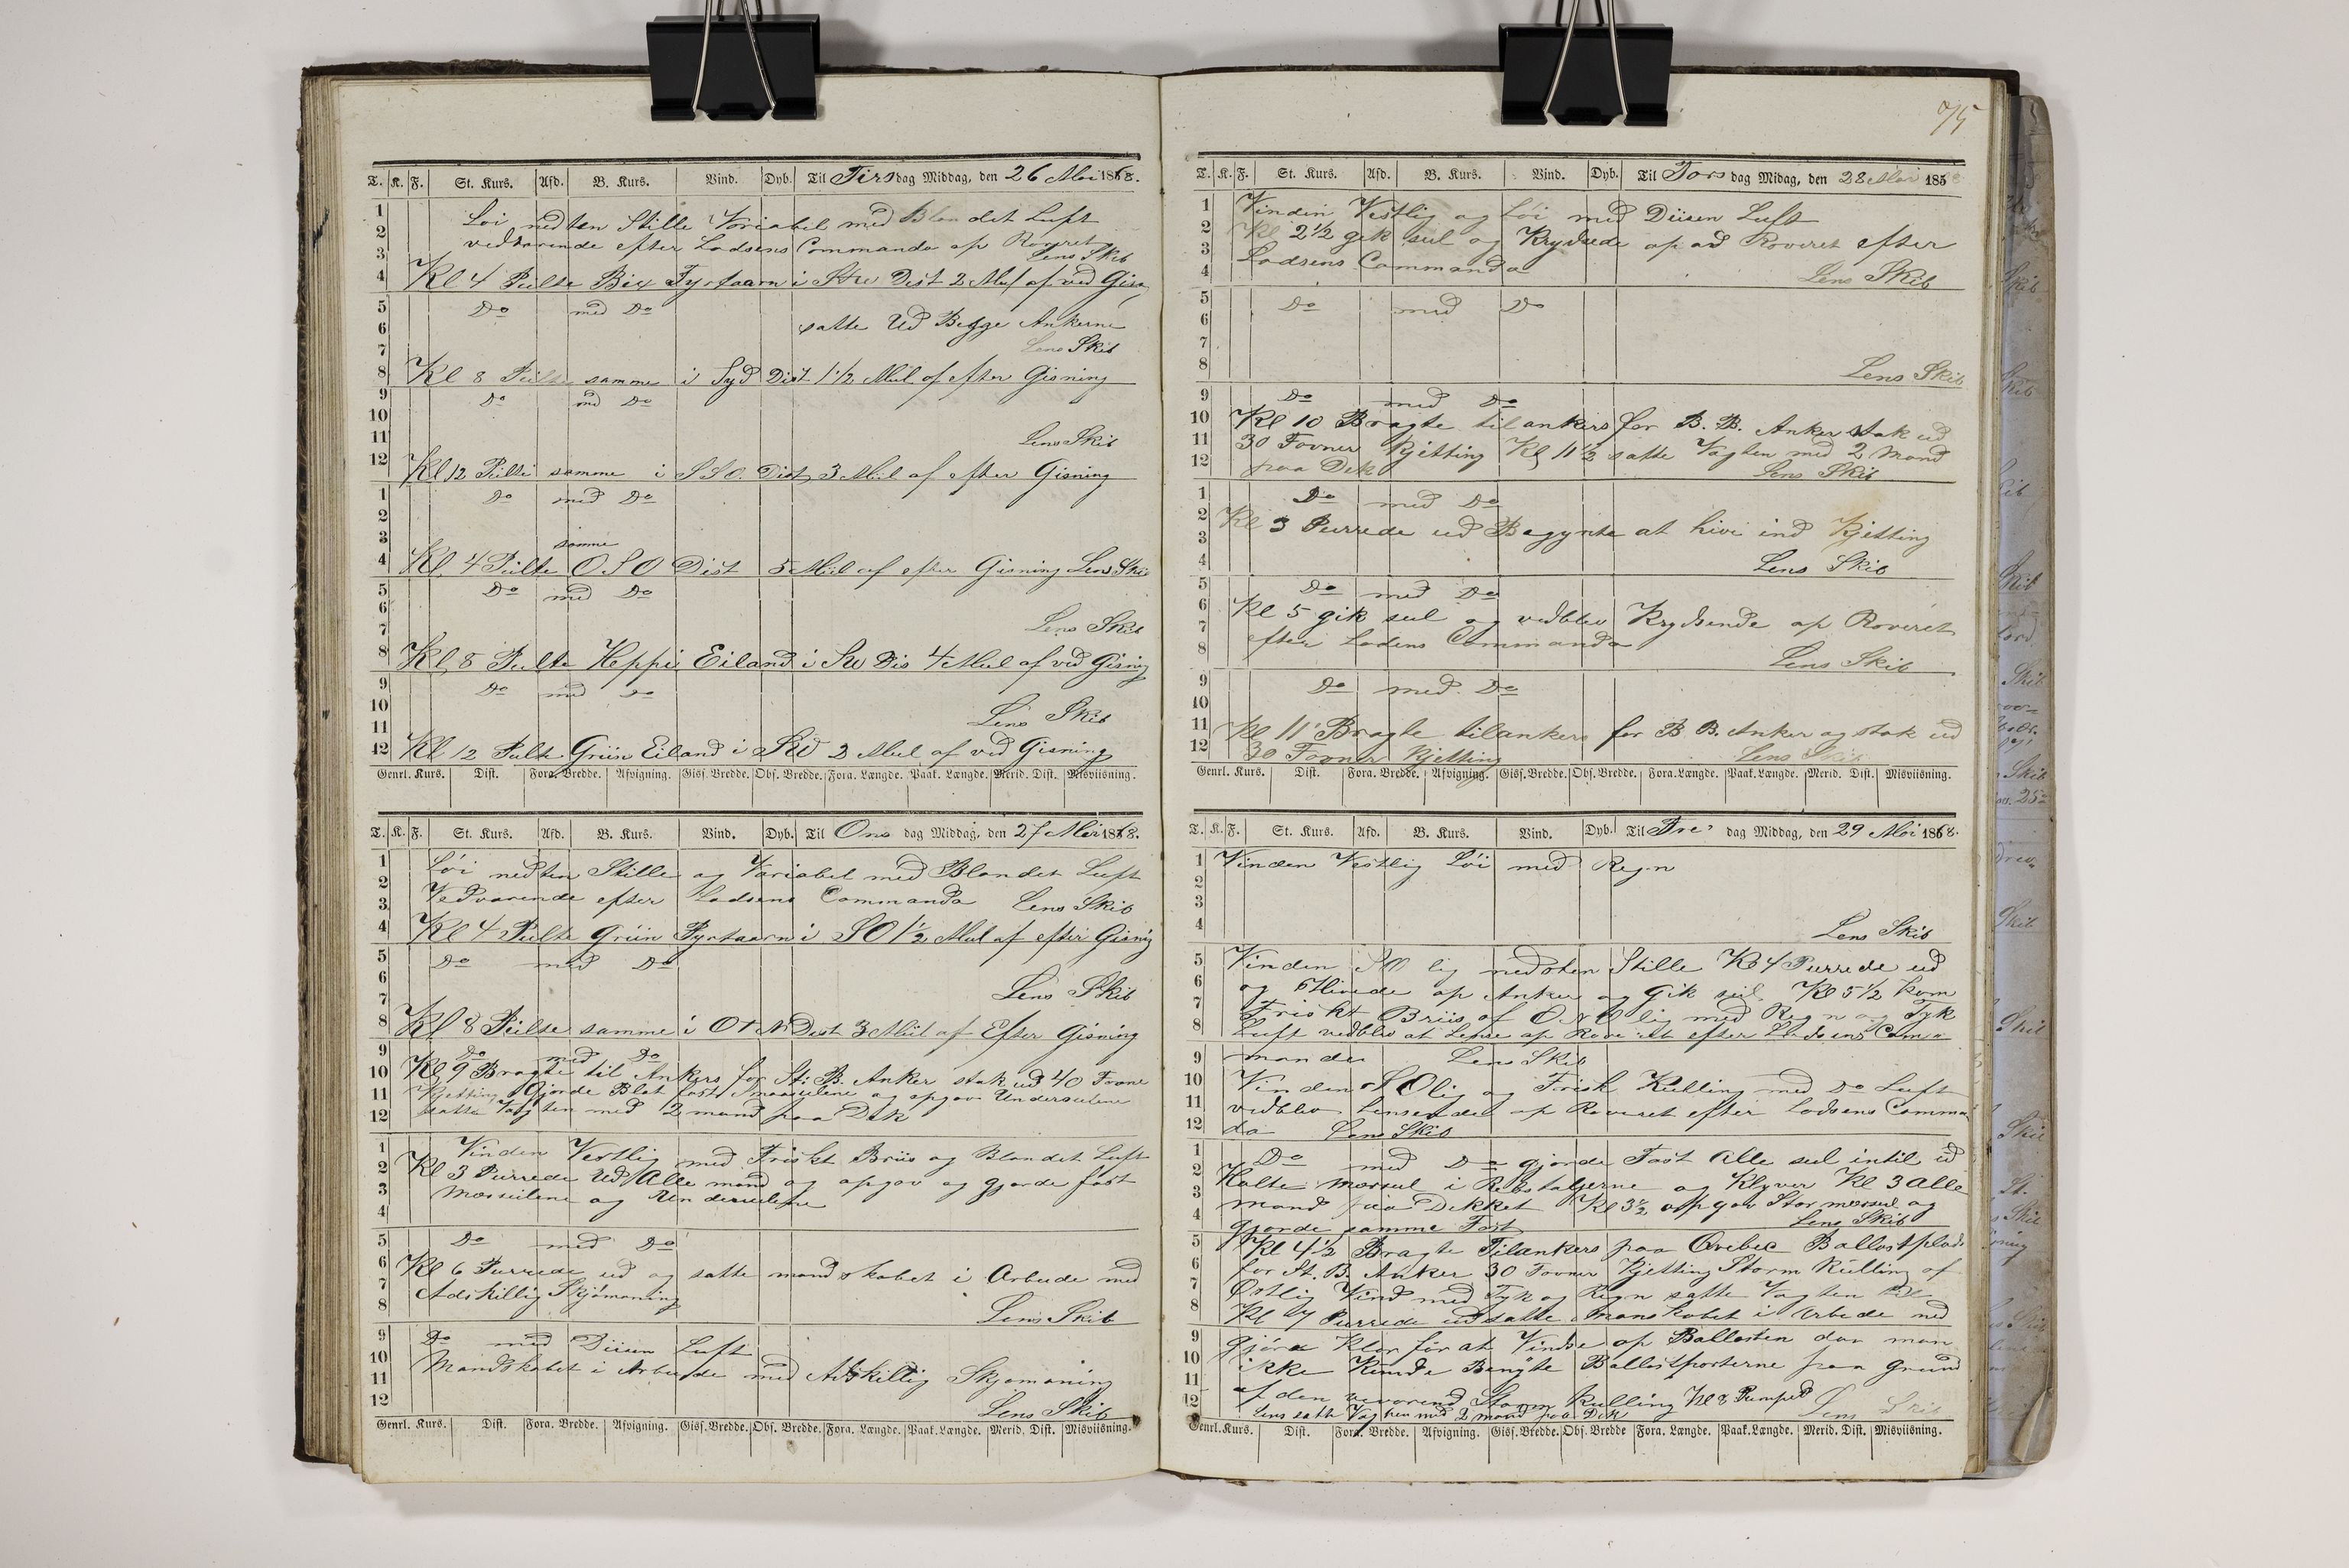 T. K. F. St. Kurs. Afd. B. Kurs. Vind. Dyb. Til Tirsdag Middag, den 26 Mai 1868.
1 Löi nedten Stille Variabel med Blandet Luft
2 vedvarende efter Lodsens Commando op Roveret
3 Lens Skib
4 Kl 4 Peilte Bix Fyrtaarn i Dist 2 Miil af ved Gisn
5 Do med Do
6 satte Ud Begge Ankerne
7 Lens Skib
8 Kl 8 Peilte samme i Syd Dist 1 1/2 Miil af efter Gisning
9 Do med Do
10
11 Lens Skib
12 Kl 12 Peilte samme i SSO. Dist 3 Miil af efter Gisning
1 Do med Do
2
3 samme
4 Kl. 4 Peilte OSO Dist 5 Miil af efter Gisning Lens Skib
5 Do med Do
6
7 Lens Skib
8 Kl 8 Peilte Heppi Eiland i SW Dis 4 Miil af ved Gisning
9 Do med Do
10 Lens Skib
11
12 Kl. 12 Peilte Grün Eiland i SW 2 Miil af ved Gisning
Genrl. Kurs. Dist. Fora. Bredde. Afvigning. Gisf. Bredde. Obf. Bredde. Fora. Længde. Paak. Længde. Merid. Dist. Misviisning.
T. K. F. St. Kurs. Afd. B. Kurs. Vind. Dyb. Til Ons dag Middag, den 27 Mai 1868.
1 Löi nedten Stille og Variabel med Blandet Luft
2 Vedvarende efter Lodsens Commando Lens Skib
3
4 Kl 4 Peilte Grün Fyrtaarn i SO 1 1/2 Miil af efter Gisning
5 Do med Do
6
7 Lens Skib
8 Kl 8 Peilte samme i OtN Dist 3 Miil af Efter Gisning
9 Do med Do
10 Kl 9 Bragte til Ankers for St: B. Anker stak ud 40 Fovne
11 Kjetting Gjorde Blot fast Smaaseilene og opgav Underseilene
12 satte Vagten med 2 mand paa Dek
1 Vinden Vestlig med Friskt Briis og Blandet Luft
2 Kl 3 Purrede Ud Alle mand og opgav og gjorde fast
3 Mærseilene og Underseilene
4
5 Do med Do
6 Kl 6 Purrede ud og satte mandskabet i Arbeide med
7 Adskillig Skjömaning
8 Lens Skib
9 Do med Diisen Luft
10 Mandskabet i Arbeide med Adskillig Skjömaning
11
12 Lens Skib
Genrl. Kurs. Dist. Fora. Bredde. Afvigning. Gisf. Bredde. Obf. Bredde. Fora. Længde. Paak. Længde. Merid. Dist. Misviisning.
T. K. F. St. Kurs. Afd. B. Kurs. Vind. Dyb. Til Tors dag Midag, den 28 Mai 1858
1 Vinden Vestlig og Löi med Diisen Luft
2 Kl 2 1/2 gik seil og Krydsede op ad Roveret efter
3 Lodsens Commando
4 Lens Skib
5 Do med Do
6
7
8 Lens Skib
9 Do med Do
10 Kl 10 Bragte til ankers for B. B. Anker stak ud
11 30 Fovner Kjetting Kl 11 1/2 satte Vagten med 2 Mand
12 paa Dek Lens Skib
1 Do med Do
2 Kl 3 Purrede ud Begynte at hive ind Kjetting
3
4 Lens Skib
5 Do med Do
6 Kl 5 gik seil og vedblev Krydsende op Roveret
7 efter Lodens Commando
8 Lens Skib
9 Do med Do
10
11 Kl 11 Bragte tilankers for B B. Anker og stak ud
12 30 Fovner Kjetting Lens Skib
Genrl. Kurs. Dist. Fora. Bredde. Afvigning. Gisf. Bredde. Obf. Bredde. Fora. Længde. Paak. Længde. Merid. Dist. Misviisning.
T. K. F. St. Kurs. Afd. B. Kurs. Vind. Dyb. Til Fre dag Middag, den 29 Mai 1868.
1 Vinden Vestlig Löi med Regn
2
3
4 Lens Skib
5 Vinden lig nedsten Stille Kl 4 Purrede ud
6 og Hivede op Anker og Gik seil. Kl 5 1/2 kom
7 Friskt Briis af lig med Regn og Tyk
8 Luft vedblev at Lense op Roveret efter Lodsens Com
9 mando Lens Skib
10 Vinden Olig og Frisk Kulling med Do Luft
11 vedblev Lensende op Roveret efter Lodsens Comman
12 do Lens Skib
1 Do med Do gjorde Fast Alle seil intil ud
2 Halte mærseil i Rebstaljerne og Klyver Kl 3 Alle
3 mand paa Dekket Kl 3 1/2 opgav Stor mærseil og
4 gjorde samme Fast Lens Skib
5 Kl 4 1/2 Bragte Tilankers paa Qvebec Ballastplads
6 for St. B. Anker 30 Fovner Kjetting Storm Kulling af
7 Østlig Vind med Tyk og Regn satte Vagten
8 Kl 7 Purrede ud satte Manskabet i Arbeide med
9 gjöra Klar for at Vinde op Ballasten da man
10 ikke Kunde Benyte Ballastporterne paa Grund
11 af den Storm Kulling Kl 8 Pumped
12 Lens satte Vagten med 2 mand paa Dek Lens Skib
Genrl. Kurs. Dist. Fora. Bredde. Afvigning. Gisf. Bredde. Obf. Bredde Fora. Længde. Paak. Længde. Merid. Dist. Misviisning.